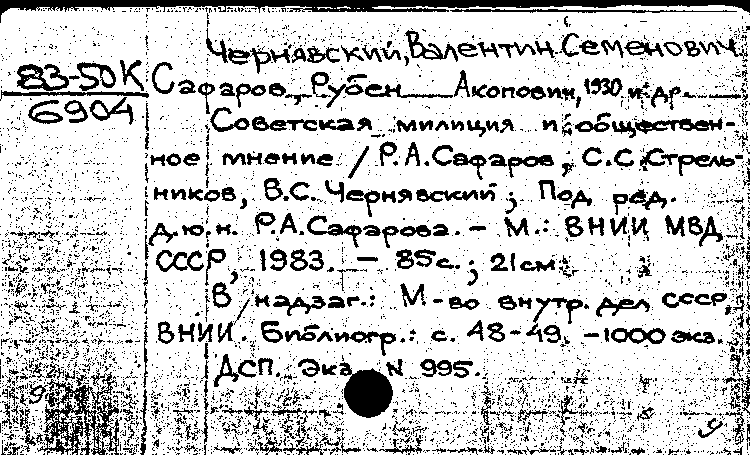 Чернявский, Валентин Семенович
83-50К
6904
Сафаров, Рубен Акопович, 1930 и др.
Советская милиция и обществен-
ное мнение / Р.А.Сафаров, С.С.Стрель-
ников, В.С.Чернявский; Под ред.
д.ю.н. Р.А.Сафарова. – М.: ВНИИ МВД
СССР, 1983. – 85с.; 21см.
В надзаг.: М-во внутр. дел СССР,
ВНИИ. Библиогр.: с. 48-49. –1000 экз.
ДСП. Экз N 995.